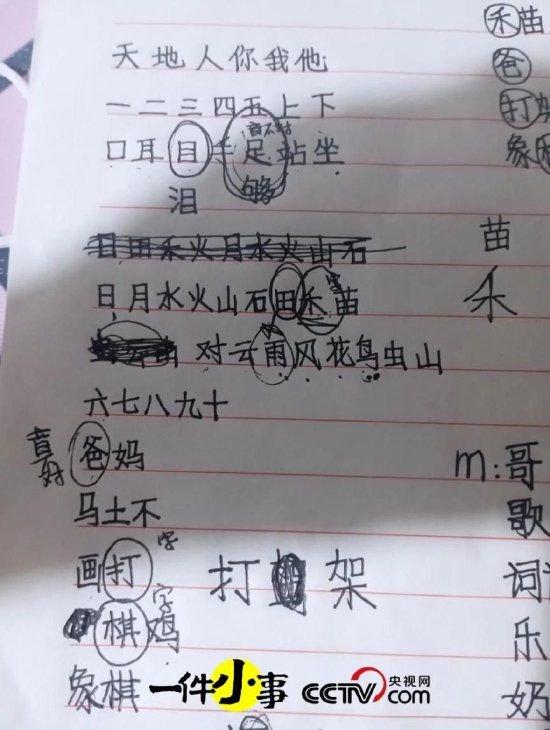 禾苗
天地人你我他
爸
一二三四五上下
打
口耳目手足站坐
象
够
泪
苗
日田禾火月水火山石
日月水火山石田禾苗
字
禾
对云雨风花鸟虫山
六七八九十
爸妈
m:哥
马土不
歌
字
画打
打架
词
字
棋鸡
乐
象棋
奶
一件小事
CCTV.com
央视网